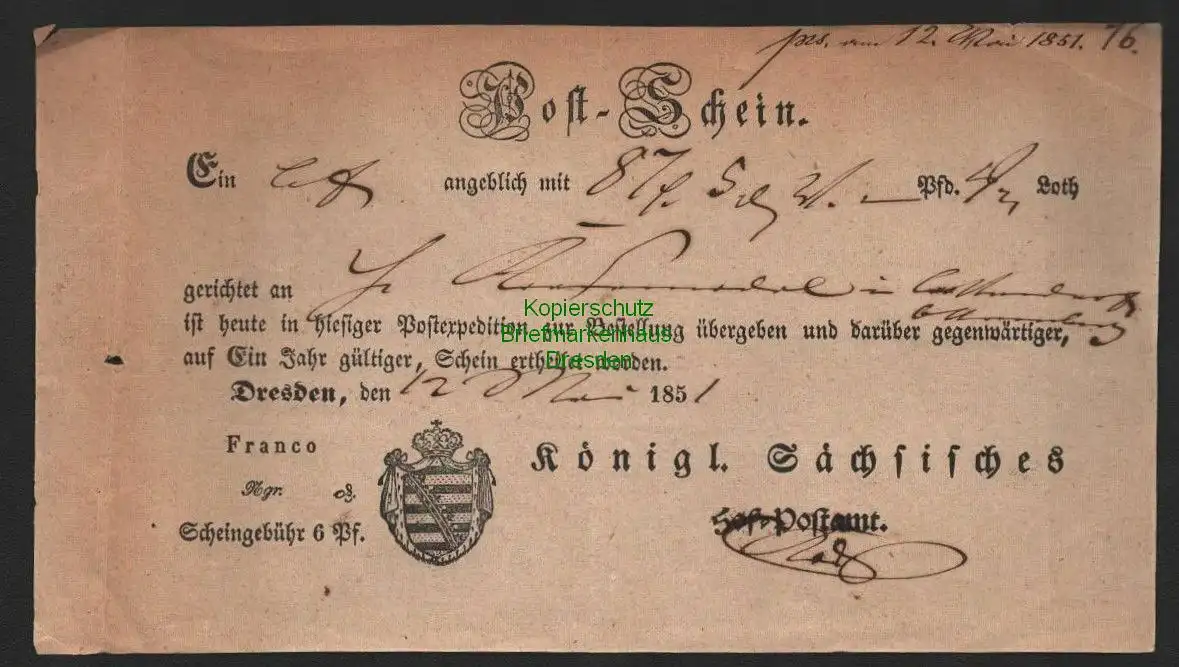 am 12. Mai 1851. 76.
Post-Schein.
Ein angeblich mit 87 Pfd. Loth
gerichtet an in
ist heute in hiesiger Postexpedition zur Bestellung übergeben und darüber gegenwärtiger,
auf Ein Jahr gültiger, Schein ertheilet worden.
Dresden, den 12 Mai 1851
Franco
Ngr. ₰.
Scheingebühr 6 Pf.
Königl. Sächsisches
Hof-Postamt.
Kopierschutz
Briefmarkenhaus
Dresden